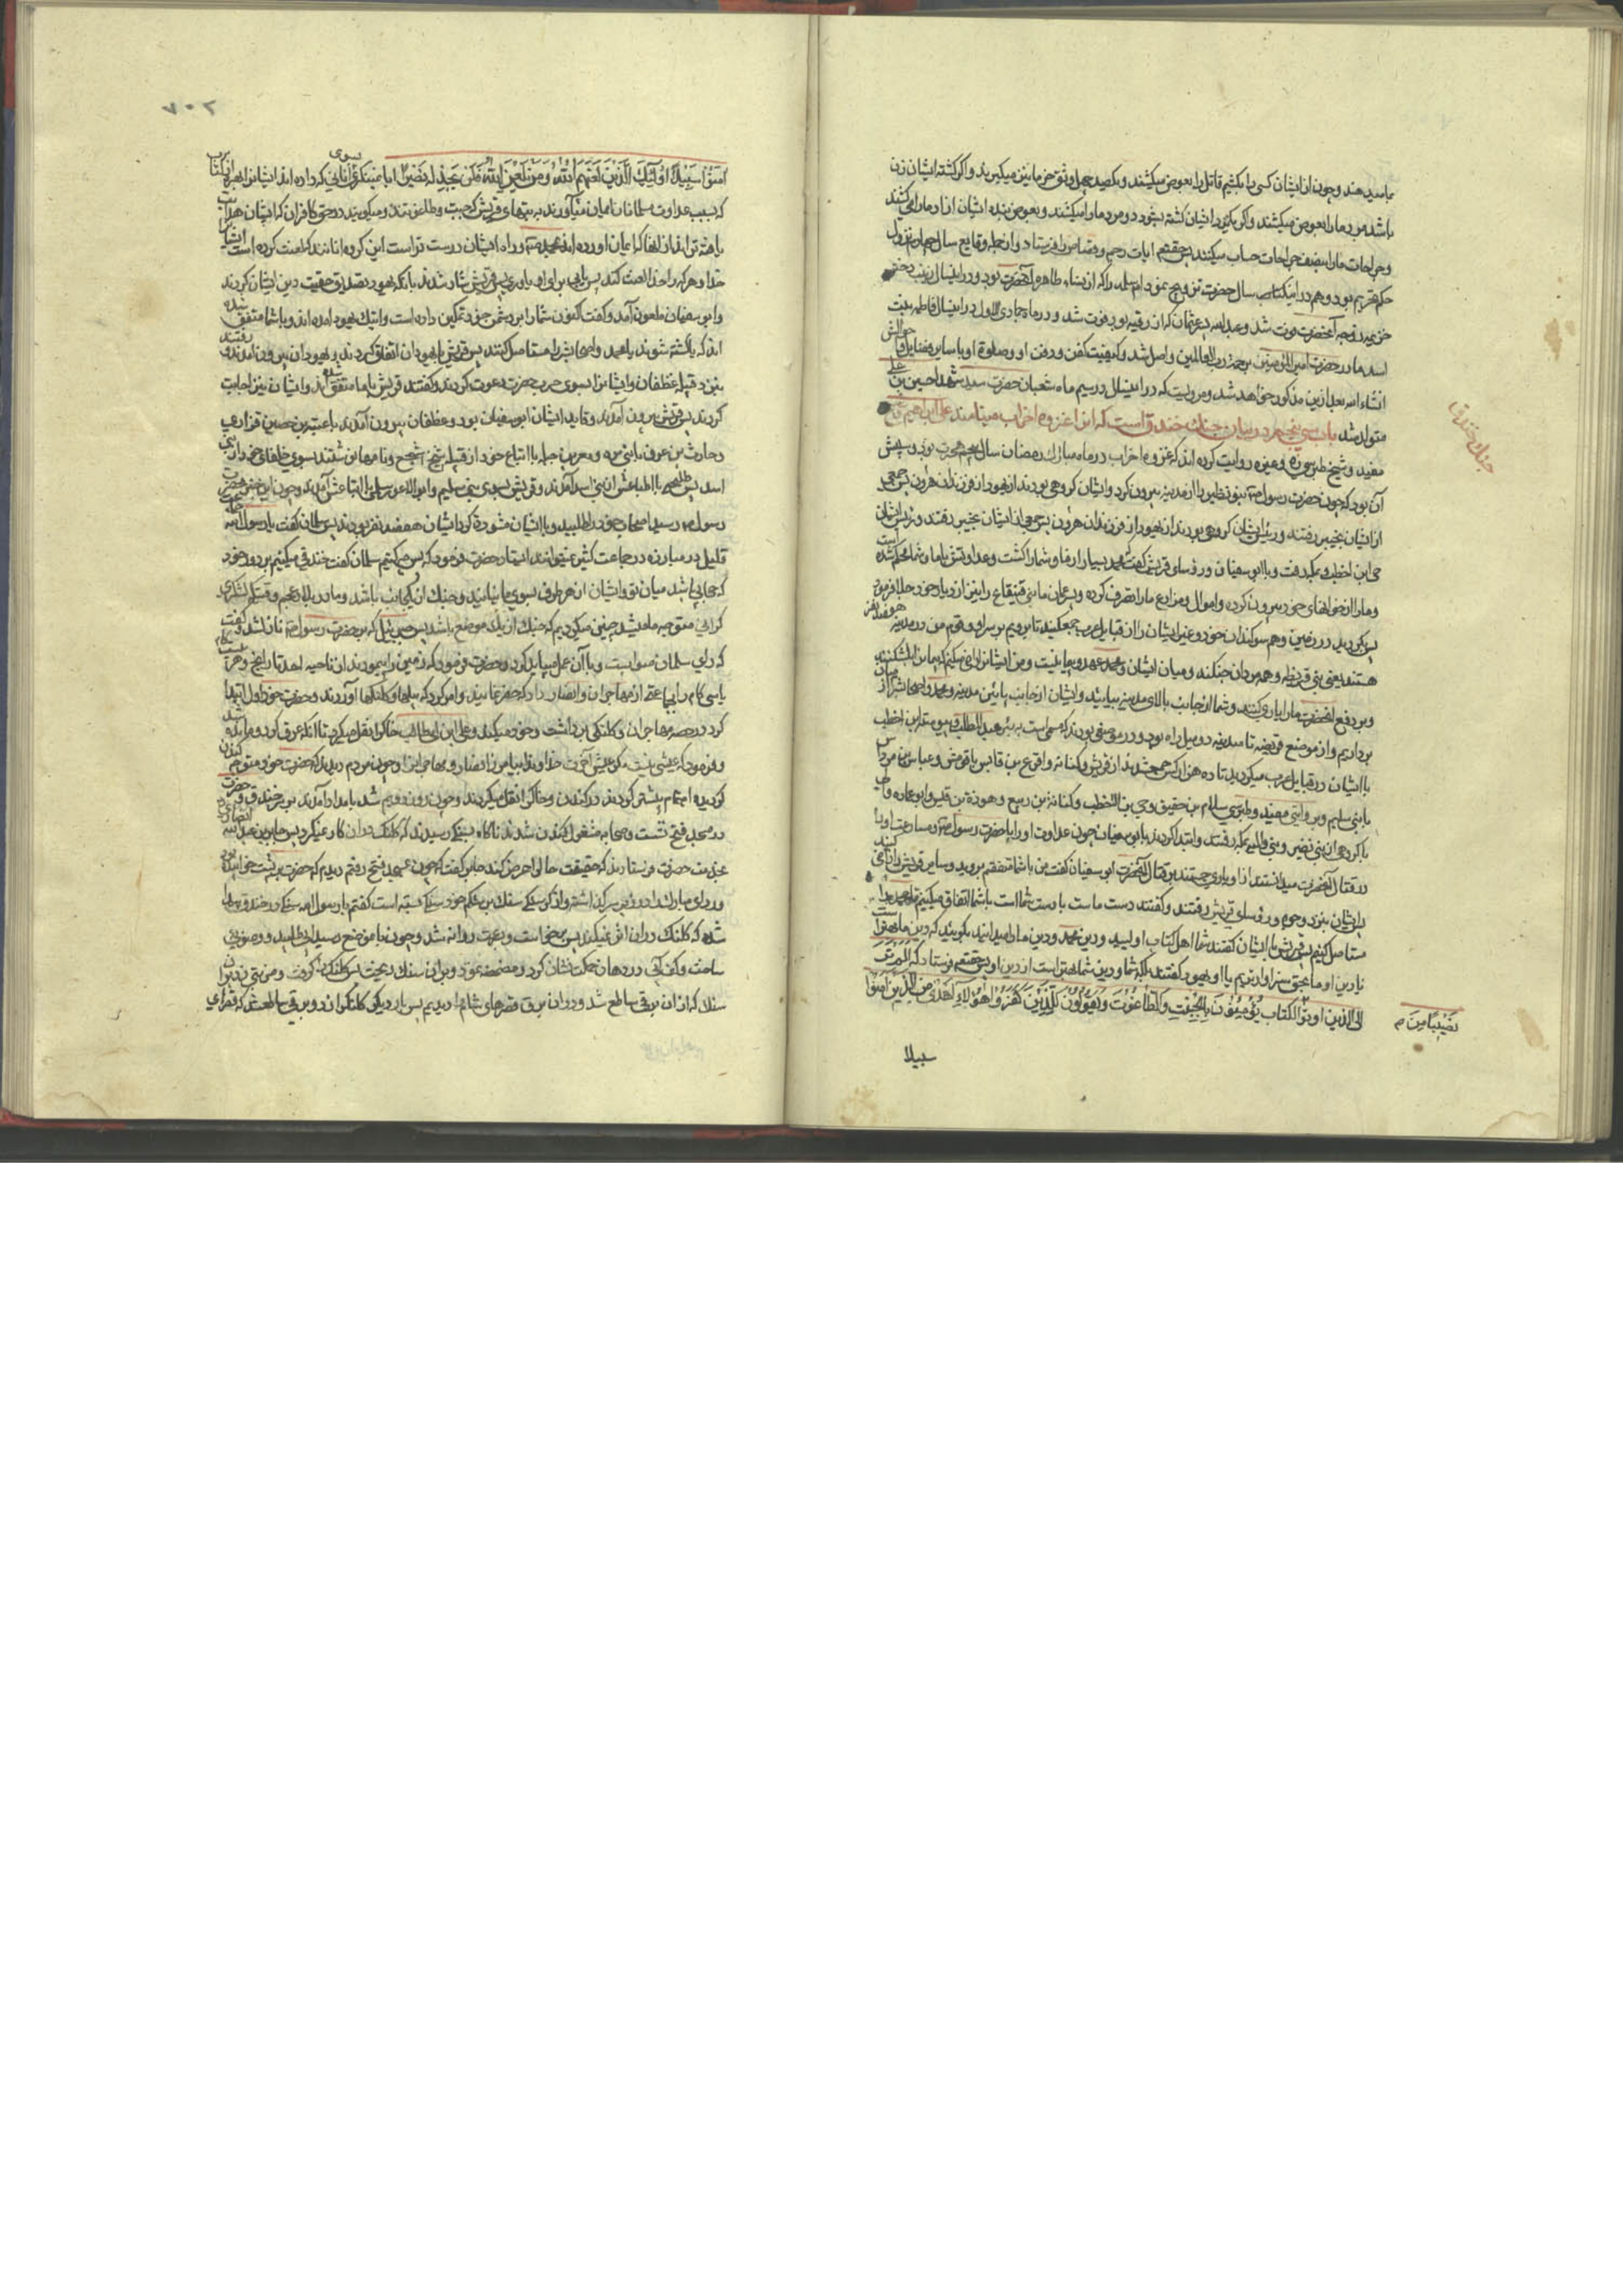 ما میدهند و چون از ایشان کسی را بکشیم قاتل را بعوض میکشند و یکصد و چهل وسق خرما نیز میگیرند و اگر کشته ایشان زن
باشد مرد ما را بعوض میکشند و اگر مردی از ایشان کشته شود دو مرد ما را میکشند و بعوض بنده ایشان آزاد ما را میکشند
و جراحات ما را نصف جراحات حساب میکنند پس حقتعالی آیات رجم و قصاص را فرستاد و از جمله وقایع سال چهارم نزول
حکم تحریم بود و هم در این سال حضرت تزویج نمود ام سلمه را که از نساء طاهره آنحضرت بود و در این سال زینب دختر
خزیمه زوجه آنحضرت فوت شد و عبدالله بن عثمان که از رقیه بود فوت شد و در ماه جمادی الاول در این سال فاطمه بنت
اسد مادر حضرت امیرالمؤمنین برحمت رب العالمین واصل شد و کیفیت کفن و دفن او و صلوة او با سایر فضایل و احوالش
انشاء الله بعد ازین مذکور خواهد شد و مرویست که در این سال در سیم ماه شعبان حضرت سید شهدا حسین بن علی
متولد شد باب سی پنجم در بیان جنک خندق است که آنرا غزوه احزاب مینامند علی ابراهیم و شیخ
جنک خندق
مفید و شیخ طبرسی و غیره روایت کرده اند که غزوه احزاب در ماه مبارک رمضان سال پنجم هجرت بود و سببش
آن بود که چون حضرت رسول بنو نضیر را از مدینه بیرون کرد و ایشان گروهی بودند از یهود از فرزندان هرون پس جمعی
از ایشان بخیبر رفتند و رئیس ایشان
حی ابن اخطب بمکه رفت و با ابوسفیان و رؤسای قریش گفت محمد بسیار از ما و شما را کشت و عداوتش با ما و شما محکم شده است
و ما را از خانهای خود بیرون کرده و اموال و مزارع ما را تصرف کرده و پسرعمان ما بنی قینقاع را نیز از دیار خود جلا فرمود
پس بگردید در زمین و هم سوگندان خود و غیر ایشان را از قبایل عرب جمع کنید تا برویم بر سر او و قوم من در مدینه هفتصد نفر
هستند یعنی بنی قریظه و همه مردان جنگند و میان ایشان و محمد عهد و پیمانیست و من ایشان را راضی میکنم که پیمان را بشکنند
و بر دفع آنحضرت ما را یاری کنند و شما از جانب بالای مدینه بیایید و ایشان از جانب پایین مدینه و محمد و اصحابش را از میان
برداریم و از موضع قریظه تا مدینه دو میل راه بود و در موضعی بودند که مسمی است به بئر عبدالمطلب پس حی ابن اخطب
با ایشان در قبایل عرب میگردید تا ده هزار کس جمع شدند از قریش و کنانه و اقرع بن حابس با قومش و عباس بن مرداس
با بنی سلیم و بروایتی مفید و طبرسی سلام بن حقیق و حی بن اخطب و کنانة بن ربیع و هوذة بن قیس و ابو عماره والبی
با گروهی از بنی نضیر و بنی والبه بمکه رفتند و ابتدا کردند بابوسفیان چون عداوت او را با حضرت رسول و مسارعت او را
در قتال آنحضرت میدانستند از او یاری جستند بر قتال آنحضرت ابوسفیان گفت من با شما متفقم بروید و سایر قریش را راضی کنید
پس ایشان بنزد وجوه و رؤسای قریش رفتند و گفتند دست ما است با دست شما است با شما اتفاق میکنیم تا محمد را
مستاصل کنیم پس قریش با ایشان گفتند شما اهل کتاب اولید و دین محمد و دین ما را میدانید بگویید که دین ما بهتر است
یا دین او ما بحق سزاوارتریم یا او یهود گفتند بلکه شما و دین شما بهتر است از دین او پس حقتعالی فرستاد که الم تر
الی الذین اوتوا نصیبا من الکتاب یؤمنون بالجبت والطاغوت ویقولون للذین کفروا هؤلاء اهدی من الذین آمنوا
نصیبا من م
سبیلا
۷۰۲
آمنوا سبیلا اولئک الذین لعنهم الله ومن یلعن الله فلن تجد له نصیرا ایا نمینگری بسوی آنانی که داده اند ایشان را بهره از کتاب
که بسبب عداوت مسلمانان ایمان میآورند به بتهای قریش که جبت و طاغوتند و میگویند در حق کافران که ایشان هدایت
یافته ترند از آنها که ایمان آورده اند بمحمد و راه ایشان درست تر است این گروه آنانند که لعنت کرده است ایشان را
خدا و هر که را خدا لعنت کند پس نیابی برای او یاوری پس قریش شاد شدند بآنکه یهود تصدیق حقیت دین ایشان کردند
و ابوسفیان ملعون آمد و گفت اکنون شما را بر دشمن خود تمکین داده است و اینک یهود آمده اند و با شما متفق شده
اند که یا کشته شوند یا محمد و اصحابش را مستاصل کنند پس قریش با یهودان اتفاق کردند و یهودان بیرون آمدند و رفتند
بنزد قبیله غطفان و ایشان را بسوی حرب حضرت دعوت کردند و گفتند قریش با ما متفق شده اند و ایشان نیز اجابت
کردند پس قریش بیرون آمدند و قاید ایشان ابوسفیان بود و غطفان بیرون آمدند با عیینة بن حصین فزاری
و حارث بن عوف با بنی مره و مسعر بن جبله با اتباع خود از قبیله اشجع و نامها نوشتند بسوی حلفای خود از بنی
اسد پس طلیحه با اتباعش از بنی اسد آمدند و قریش بسوی بنی سلیم و ابوالاعور سلمی با اتباعش آمدند و چون این خبر بحضرت
رسول رسید اصحاب خود را طلبید و با ایشان مشورة کرد ایشان هفصد نفر بودند پس سلمان گفت یا رسول الله جماعت
قلیل در مبارزه در جماعت کثیر نمیتوانند ایستاد حضرت فرمود که پس چه کنیم سلمان گفت خندقی میکنیم بر دور خود
که حجابی باشد میان تو و ایشان از هر طرف بسوی ما نیایند و جنک از یکجانب باشد و ما در بلاد عجم وقتیکه لشکری
گرانی متوجه ما میشد چنین میکردیم که جنک از یک موضع باشد پس جبرئیل که بر حضرت رسول نازل شد و گفت
که رای سلمان صوابست و بآن عمل میباید کرد و حضرت فرمود که زمین را پیمودند از ناحیه احد تا راتج و هر بیست کام
یا سی کام را بجماعتی از مهاجران و انصار داد که حفر نمایند و امر کرد که بیلها و کلنگها آوردند و حضرت خود اول ابتدا
کرد در حصه مهاجران و کلنگی برداشت و خود میکند و علی ابن ابی طالب خاکرا نقل میکرد تا آنکه عرق کرد و مانده شد
و فرمود که عیشی نیست مگر عیش آخرت خداوندا بیامرز انصار و مهاجران را و چون مردم دیدند که حضرت خود متوجه کندن
گردیده اهتمام بیشتر کردند در کندن و خاکرا نقل میکردند و چون روز دویم شد بامداد آمدند بر سر خندق و حضرت
در مسجد فتح نشست و صحابه مشغول کندن شدند ناگاه بسنگی رسیدند که کلنگ در آن کار نمیکرد پس جابر بن عبدالله انصاری را
بخدمت حضرت فرستادند که حقیقت حال را عرض کند جابر گفت که چون بمسجد فتح رفتم دیدم که حضرت بر پشت خوابیده بود
و ردای مبارک را در زیر سر گذاشته و از گرسنگی سنک بر شکم خود بسته است گفتم یا رسول الله سنگی در خندق پیدا
شده که کلنگ در آن اثر نمیکند پس برخواست و بسرعت روانه شد و چون بآن موضع رسید آبی طلبید و وضویی
ساخت و کف آبی در دهان حکمت نشان کرد و مضمضه نمود و بر آن سنک ریخت پس کلنک را گرفت و ضربتی زد بر آن
سنک که از آن برقی ساطع شد و در آن برق قصرهای شام را دیدیم پس بار دیگر کلنک را زد و برقی ساطع شد که قصرهای